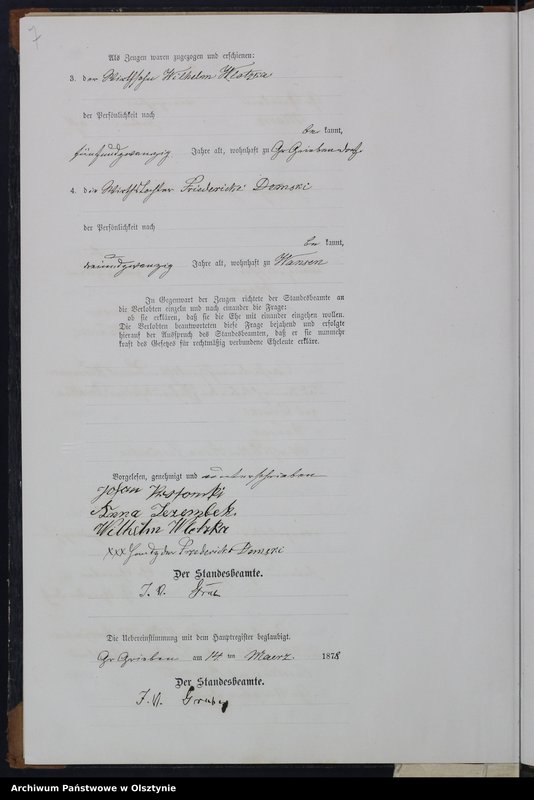 7
Als Zeugen waren zugezogen und erschienen:
3. der Wirthssohn Wilhelm Wlotzka
der Persönlichkeit nach
be kannt,
fünfundzwanzig Jahre alt, wohnhaft zu Gr Grieben
4. die Wirthstochter Friedericke Demski
der Persönlichkeit nach
be kannt,
neunundzwanzig Jahre alt, wohnhaft zu Wansen
In Gegenwart der Zeugen richtete der Standesbeamte an
die Verlobten einzeln und nach einander die Frage:
ob sie erklären, daß sie die Ehe mit einander eingehen wollen.
Die Verlobten beantworteten diese Frage bejahend und erfolgte
hierauf der Ausspruch des Standesbeamten, daß er sie nunmehr
kraft des Gesetzes für rechtmäßig verbundene Eheleute erkläre.
Vorgelesen, genehmigt und unterschrieben
Johan
Anna
Wilhelm Wlotzka
XXX Handz der Friedericke Demski
Der Standesbeamte.
J. V.
Die Uebereinstimmung mit dem Hauptregister beglaubigt.
Gr Grieben am 14 ten Maerz 1878
Der Standesbeamte.
J. V.
Archiwum Państwowe w Olsztynie